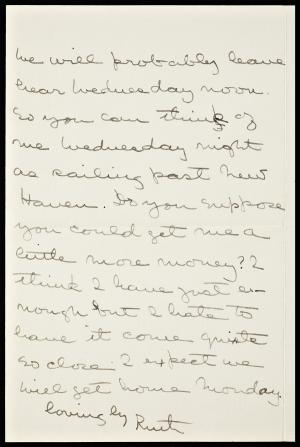 We will probably leave
hear Wednesday noon.
So you can think of
me Wednesday night
as sailing past New
Haven. Do you suppose
you could get me a
little more money? I
think I have just e-
nough but I hate to
have it come quite
so close. I expect we
will get home Monday.
Lovingly Rust